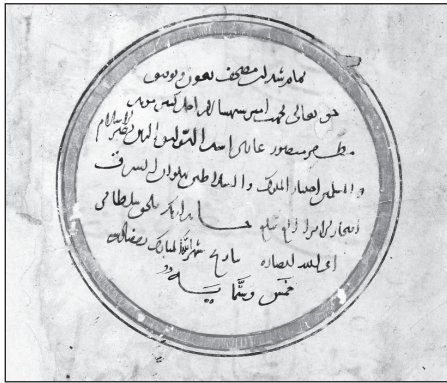 تمام شد این مصحف بعون و توفیق
حق تعالی امیر سپهسالار اجل کبیر
مظفر منصور عادل اسد الدین ظهیر الاسلام
و المسلمین اختیار الملوک و السلاطین پهلوان الشرق
افتخار الامرا الغ قتلغ سلطانی
اعز الله انصاره بتاریخ شهر الله المبارک رمضان
خمس و ستمایه